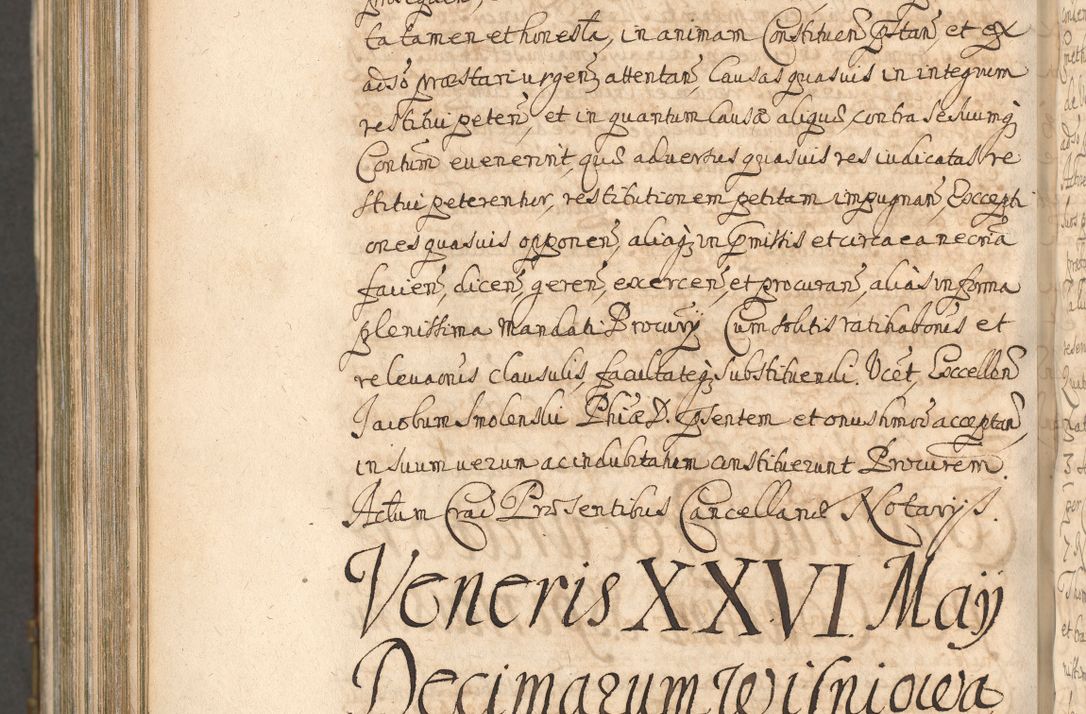 ta tamen et honesta, in animam Constituen pstan, et ex
adso præstari urgen, attentan, Causas quasuis in integrum
restitui peten, et in quantum Causæ aliquæ, contra se suumq
Contum euenerint, quæ aduersus quasuis res iudicatas re
stitui peterentur, restitutionem petitam impugnan, Excepti
ones quasuis opponen, aliaq in pmissis et circa ea necria
facien, dicen, geren, exercen, et procuran, alias in forma
plenissima Mandati Procury Cum solitis ratihabonis et
releuaonis clausulis, facultateq substituendi. Vcet, Excellen
Jacobum Smolenski Phiæ D. psentem et onus hmoi acceptan,
in suum uerum ac indubitatum constituerunt Procurem
Actum Crac Præsentibus Cancellariæ Notarijs.
Veneris XXVI. Maij
Decimarum Wisniowa